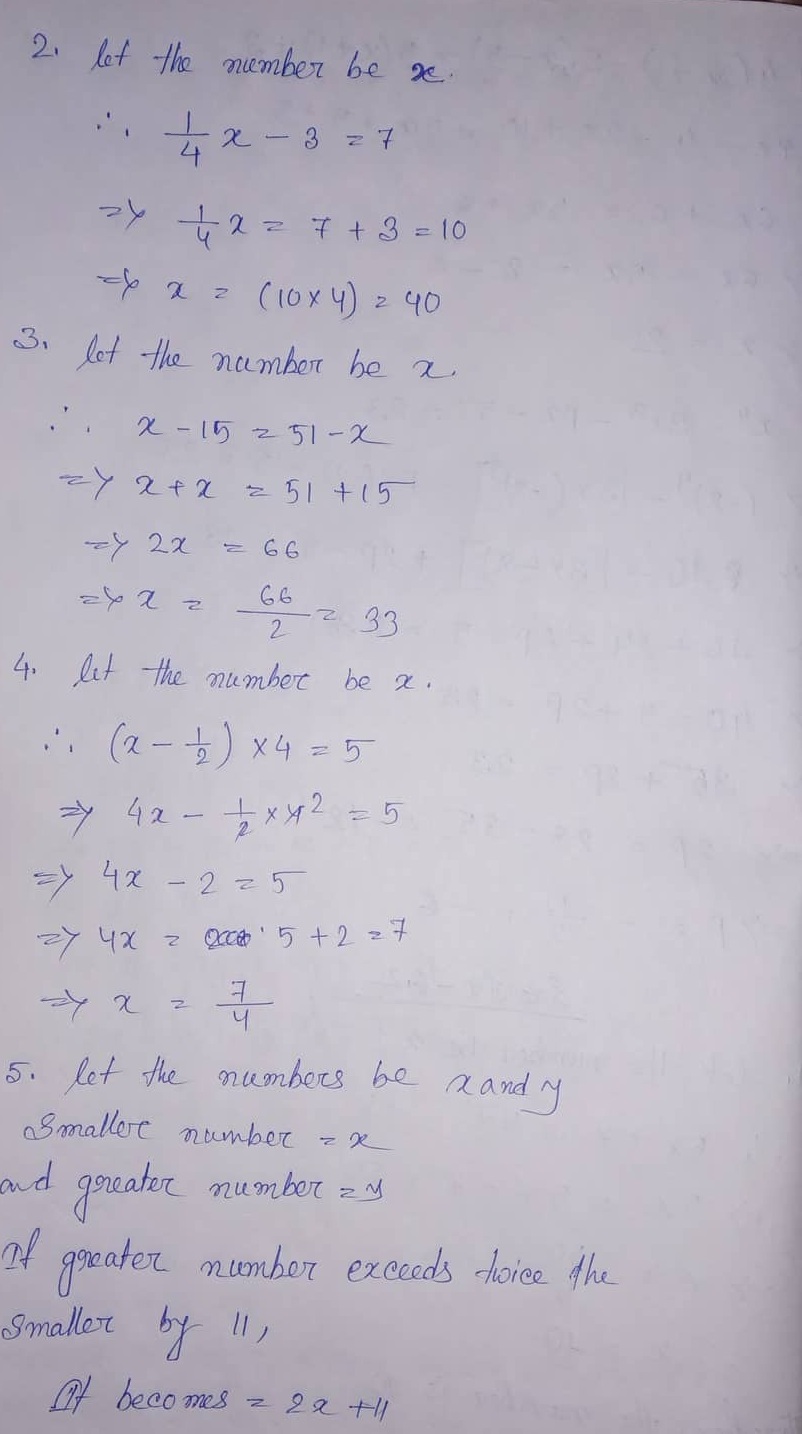 2. let the number be x.
∴ 1/4 x - 3 = 7
=> 1/4 x = 7 + 3 = 10
=> x = (10 x 4) = 40
3. let the number be x.
∴ x - 15 = 51 - x
=> x + x = 51 + 15
=> 2x = 66
=> x = 66/2 = 33
4. let the number be x.
∴ (x - 1/2) x 4 = 5
=> 4x - 1/2 x 4 2 = 5
=> 4x - 2 = 5
=> 4x = 5 + 2 = 7
=> x = 7/4
5. let the numbers be x and y
Smaller number = x
and greater number = y
If greater number exceeds twice the
smaller by 11,
It becomes = 2x + 11